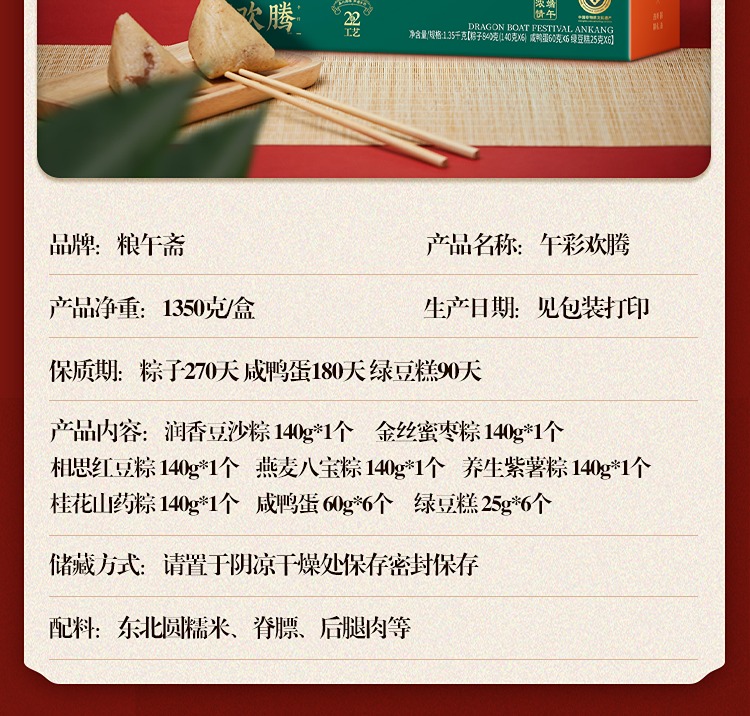 欢腾
22
工艺
DRAGON BOAT FESTIVAL ANKANG
净含量/规格:1.35千克【粽子840克(140克X6) 咸鸭蛋60克X6 绿豆糕25克X6】
品牌: 粮午斋 产品名称: 午彩欢腾
产品净重: 1350克/盒 生产日期: 见包装打印
保质期: 粽子270天 咸鸭蛋180天 绿豆糕90天
产品内容: 润香豆沙粽 140g*1个 金丝蜜枣粽 140g*1个
相思红豆粽 140g*1个 燕麦八宝粽 140g*1个 养生紫薯粽 140g*1个
桂花山药粽 140g*1个 咸鸭蛋 60g*6个 绿豆糕 25g*6个
储藏方式: 请置于阴凉干燥处保存密封保存
配料: 东北圆糯米、脊膘、后腿肉等